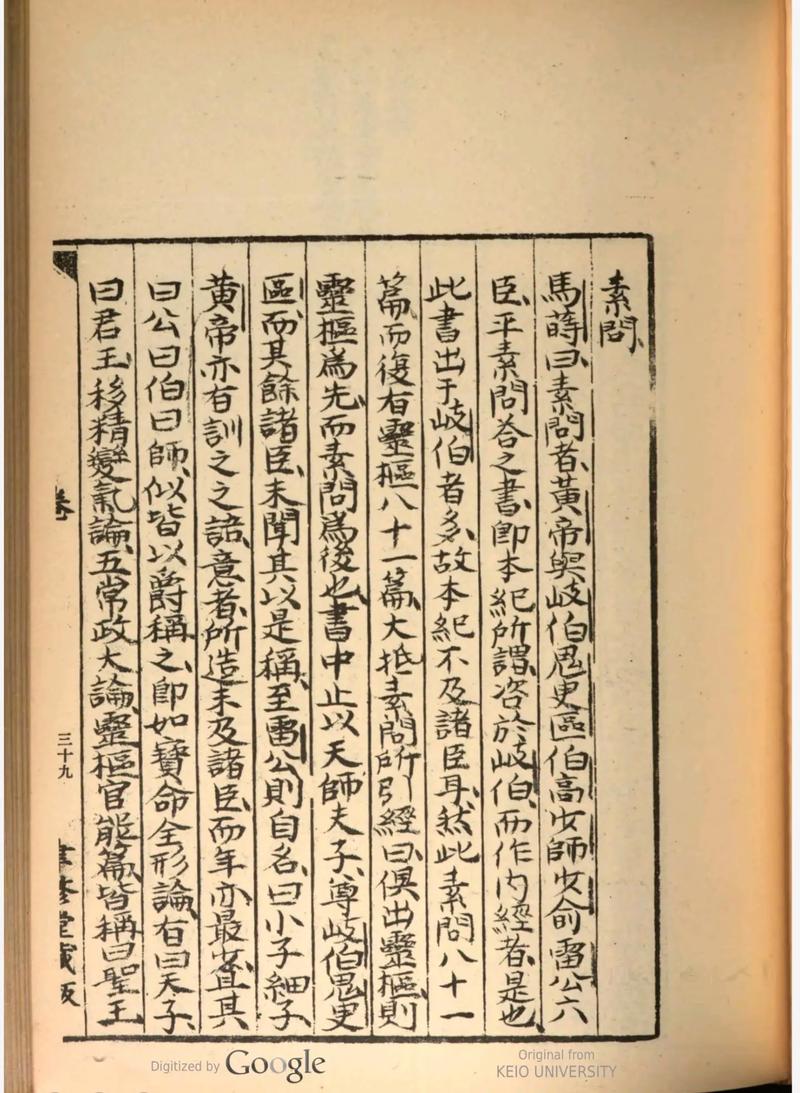 素問
馬蒔曰素問者黃帝與岐伯鬼臾區伯高少師少俞雷公六
臣平素問荅之書即本紀所謂咨於岐伯而作內經者是也
此書出于岐伯者多故本紀不及諸臣耳然此素問八十一
篇而復有靈樞八十一篇大抵素問所引經曰俱出靈樞則
靈樞爲先而素問爲後也書中止以天師夫子尊岐伯鬼臾
區而其餘諸臣未聞其以是稱至雷公則自名曰小子細子
黃帝亦有訓之之語意者所造未及諸臣而年亦最少宜其
曰公曰伯曰師似皆以爵稱之即如寶命全形論有曰天子
曰君王移精變氣論五常政大論靈樞官能篇皆稱曰聖王
卷
三十九
聿修堂藏版
Digitized by Google
Original from
KEIO UNIVERSITY